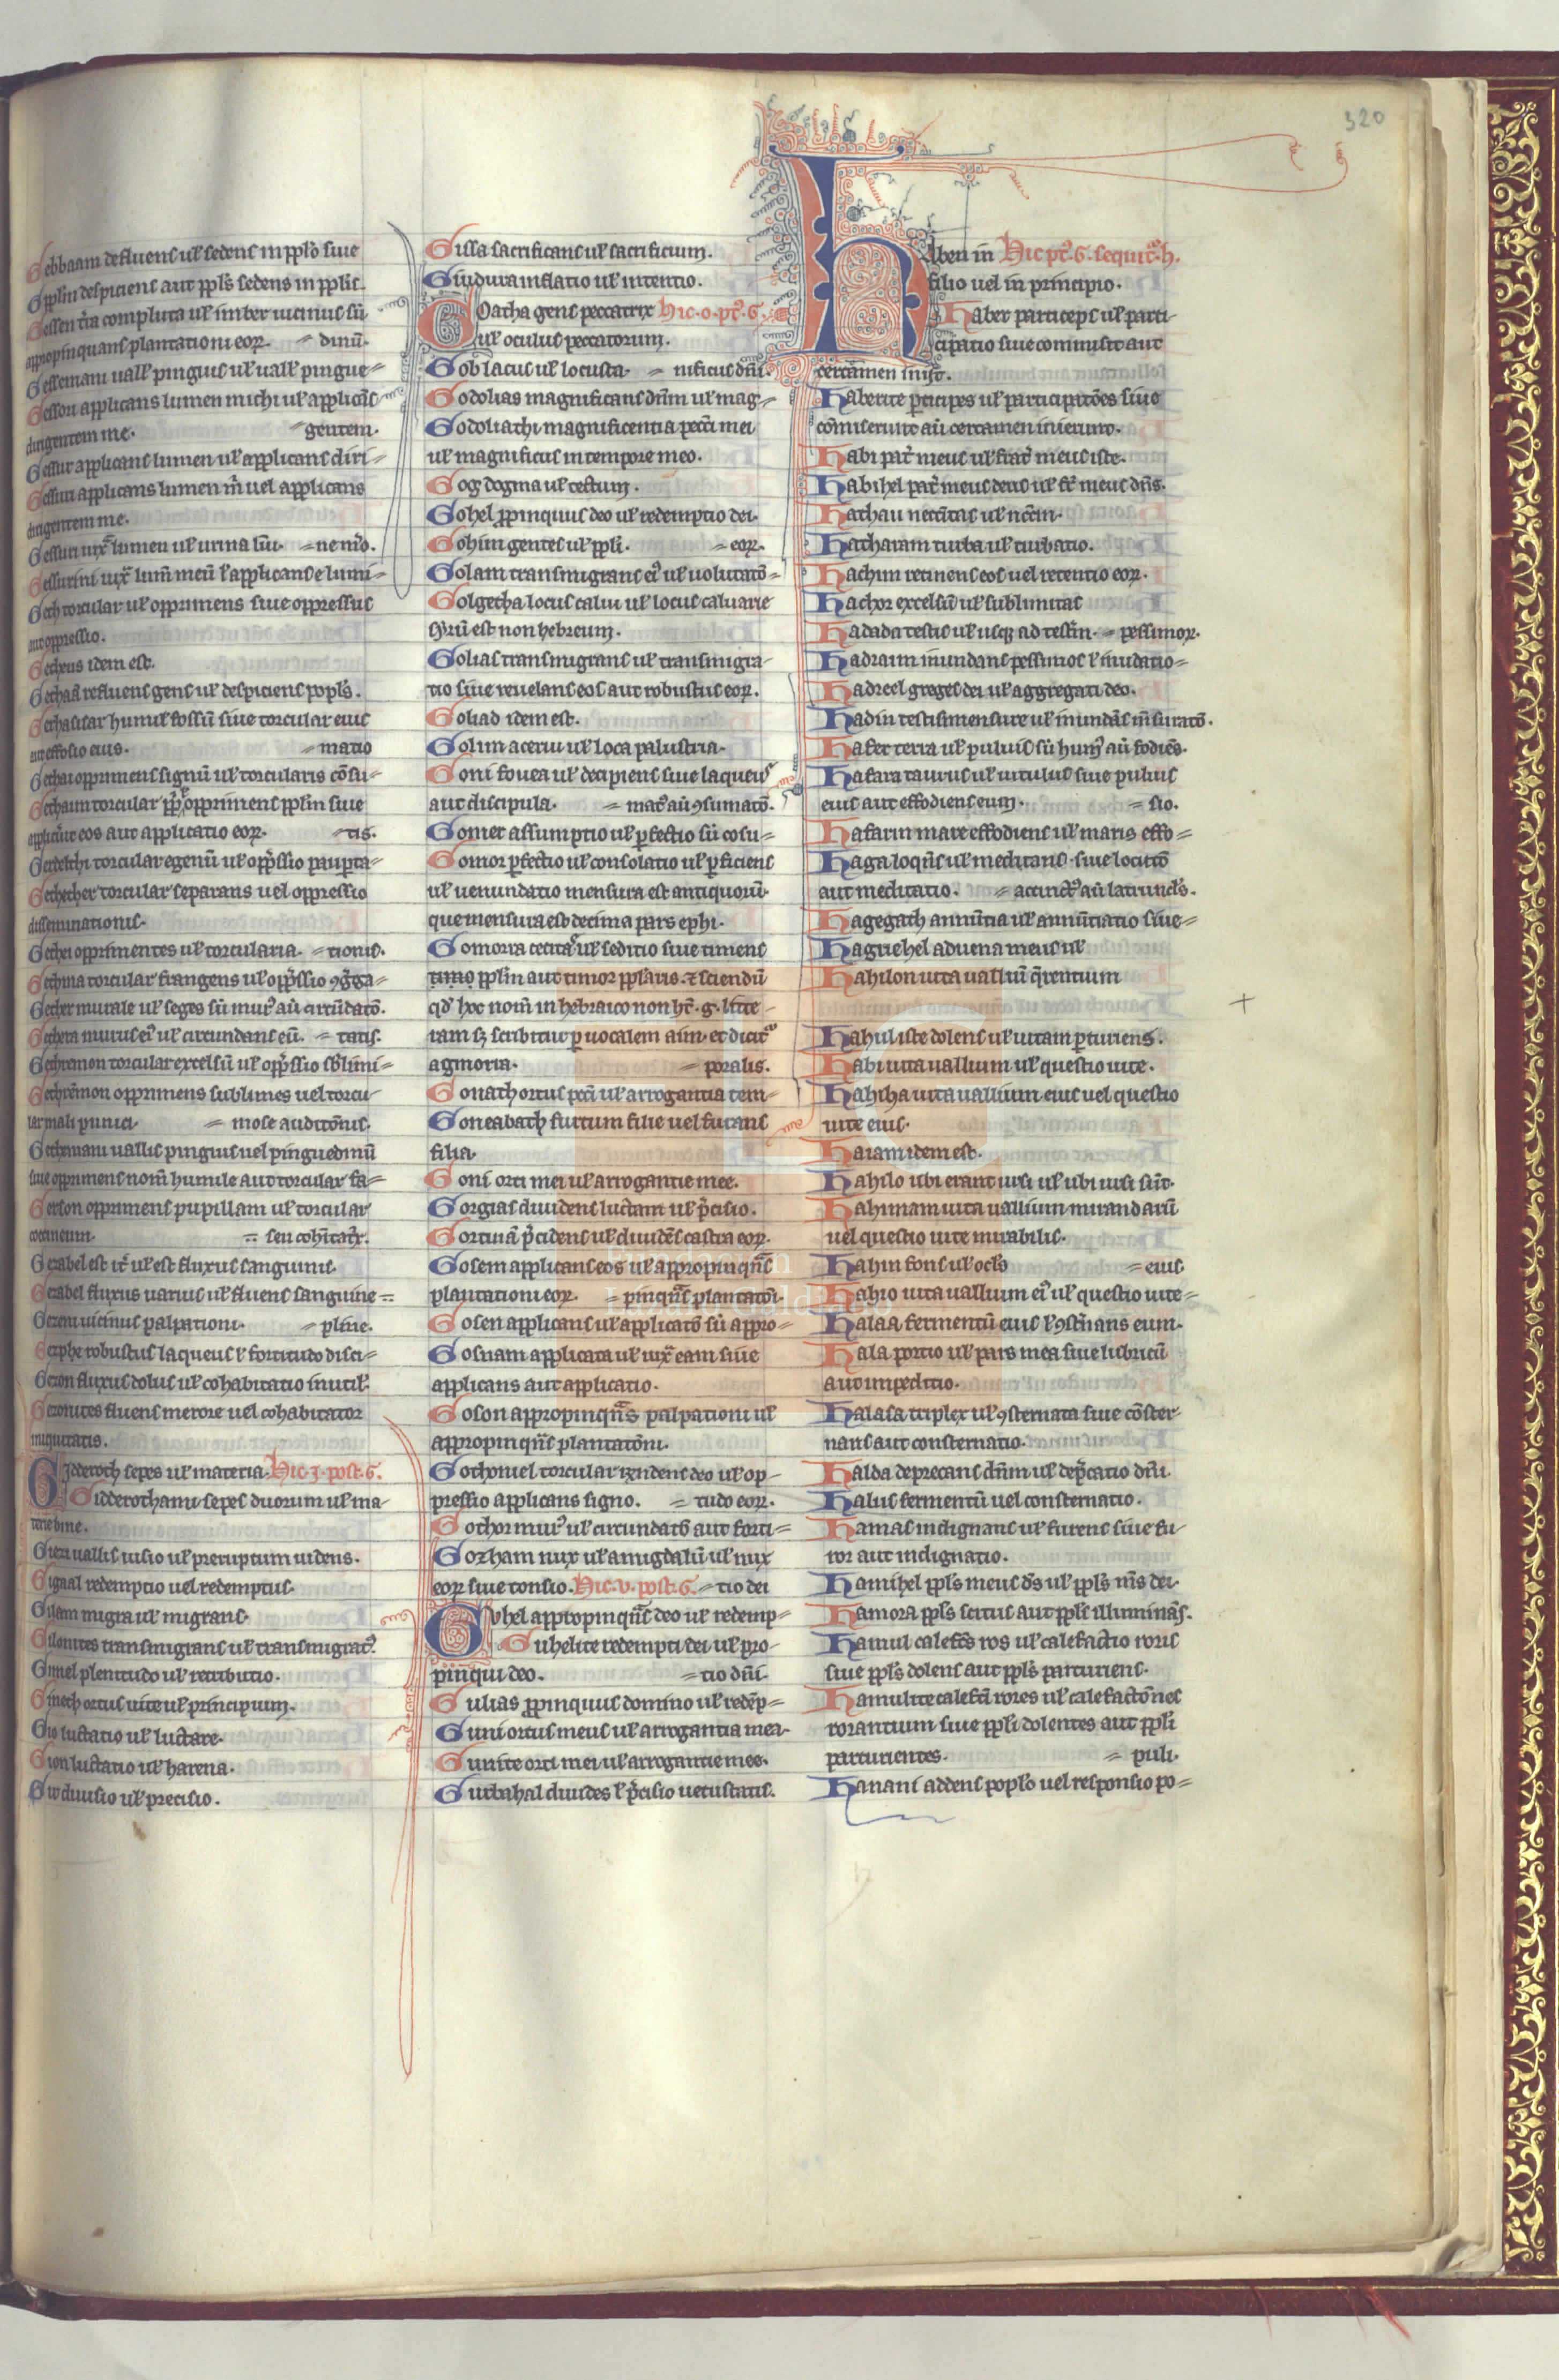 320
Gebbaam defluens ul̃ sedens in ppl̃o siue
Gpplin despiciens aut ppl̃s sedens in ppl̃is
Gessen tr̃a compluta ul̃ imber uicinus sũ
appropinquans plantationi eoꝝ. = dinũ.
Gessemani uall' pinguis ul̃ uall' pingue=
Gesson applicans lumen michi ul̃ applicãs
dirigentem me. gentem.
Gessur applicans lumen ul̃ applicans diri=
Gessuri applicans lumen m̃ uel applicans
dirigentem me.
Gessuri iuxͣ lumen ul̃ urina lũi. = ne mr̃o.
Gessurini iuxͣ lum̃ meũ l̃ applicans e lumi=
Geth torcular ul̃ opprimens siue oppressus
aut oppressio.
Getheus idem est.
Gethaã refluens gens ul̃ despiciens popl̃s.
Gethasar humul̃ fossũ siue torcular eius
aut effossio eius. = matio
Gethai opprimens signũ ul̃ torcularis cõsu=
Gethaim torcular pp̃ opprimens ppl̃m siue
applicãt eos aut applicatio eoꝝ. = tis.
Gettelthi torcular egenũ ul̃ opp̃ssio paupta=
Gethecher torcular separans uel oppressio
disseminationis.
Gethei opprimentes ul̃ torcularia. = tionis.
Gethina torcular frangens ul̃ opp̃ssio ꝯg̃ga=
Gether murale ul̃ seges sũ murꝰ aũ circũdatõ.
Gethera murus eiꝰ ul̃ circundans eũ. = tatis.
Gethremon torcular excelsũ ul̃ opp̃ssio sb̃limi=
Gethrẽmon opprimens sublimes uel torcu=
lar mali punici. = mose auditõnis.
Gethsemani uallis pinguis uel pinguedinũ
siue opprimens nom̃ humile aut torcular fa=
Getson opprimens pupillam ul̃ torcular
coccineum. = seu cohĩtatr̃.
Gezabel est itᷓ ul̃ est fluxus sanguinis.
Gezabel fluxus uarius ul̃ fluens sanguine=
Gezan uicinus palpationi. = pline.
Gezphe robustus laqueus l̃ fortitudo disci=
Gezon fluxus dolus ul̃ cohabitatio inutil'.
Gezonites fluens merore uel cohabitator
iniquitatis.
Gidderoth sepes ul̃ materia. Hic .i. post .G.
Gidderothami sepes duorum ul̃ ma-
terie bine.
Giezi uallis uisio ul̃ preruptum uidens.
Gigaal redemptio uel redemptus.
Gilam migra ul̃ migrans.
Gilonites transmigrans ul̃ transmigratꝰ.
Gimel plenitudo ul̃ retributio.
Gineth ortus uite ul̃ principium.
Gio luctatio ul̃ luctare.
Gion luctatio ul̃ harena.
Gir diuisio ul̃ precisio.
Gissa sacrificans ul̃ sacrificium.
Giudura inflatio ul̃ intentio.
Goatha gens peccatrix Hic .o. pt̃ .G.
ul̃ oculus peccatorum.
Gob lacus ul̃ locusta. = nificus dñi.
Godolias magnificans dñm ul̃ mag-
Godoliathi magnificentia pecc̃i mei
ul̃ magnificus in tempore meo.
Gog dogma ul̃ tectum.
Gohel ꝓpinquus deo ul̃ redemptio dei.
Gohim gentes ul̃ ppl̃i. = eoꝝ.
Golam transmigrans eiꝰ ul̃ uolutatõ=
Golgetha locus calui ul̃ locus caluarie
syrũ est non hebreum.
Golias transmigrans ul̃ transmigra-
tio siue reuelans eos aut robustus eoꝝ.
Goliad idem est.
Golim acerui ul̃ loca palustria.
Goni fouea ul̃ decipiens siue laqueus
aut discipula. = matꝰ aũ ꝯsumatõ.
Gomer assumptio ul̃ ꝑfectio sũ cõsu=
Gomor ꝑfectio ul̃ consolatio ul̃ ꝑficiens
ul̃ uenundatio mensura est antiquorũ.
que mensura est decima pars ephi.
Gomorra cecitas ul̃ seditio siue timens
timo ppl̃m aut timor ppl̃aris. ⁊ sciendũ
qd̃ hoc nom̃ in hebraico non ht̃ .g. litte-
ram sꝫ scribitur ꝑ uocalem aim. et dicitᷣ
agmoria. = poralis.
Gonath ortus pecc̃i ul̃ arrogantia tem-
Goneabath furtum filie uel furans
filia.
Goni orti mei ul̃ arrogantie mee.
Gorgias diuidens luctam ul̃ p̃cisio.
Gortinã p̃cidens ul̃ diuidẽs castra eoꝝ.
Gosem applicans eos ul̃ appropinqñs
plantationi eoꝝ. = pinqñs plantatõi.
Gosen applicans ul̃ applicatõ sũ appro=
Gosnam applicata ul̃ iuxͣ eam siue
applicans aut applicatio.
Goson appropinqñs palpationi ul̃
appropinqñs plantatõni.
Gothoniel torcular rñdens deo ul̃ op-
pressio applicans signo. = tudo eoꝝ.
Gothor murꝰ ul̃ circundatõ aut forti=
Gozham nux ul̃ amigdalũ ul̃ nux
eoꝝ siue tonsio. Hic .v. post .G. = tio dei
Guhel appropinqñs deo ul̃ redemp=
Guhelite redempti dei ul̃ pro-
pinqui deo. = tio dñi.
Gulias ꝓpinquus domino ul̃ redẽp=
Guni ortus meus ul̃ arrogantia mea.
Gunite orti mei ul̃ arrogantie mee.
Gurbahal diuides l̃ p̃cisio uetustatis.
Haben in Hic pt̃ .G. sequitᷣ .h.
filio uel in principio.
Haber particeps ul̃ parti-
cipatio siue commisit aut
certamen iniit.
Haberite ꝑticipes ul̃ participatões siue
cõmiserunt aũ certamen inierunt.
Habi pat̃ meus ul̃ frat̃ meus iste.
Habihel pat̃ meus deus ul̃ fr̃ meus dñs.
Hathau necc̃itas ul̃ ncc̃m.
Hatharam turba ul̃ turbatio.
Hachim retinens eos uel retentio eoꝝ.
Hachor excelsũ ul̃ sublimitas
Hadada testis ul̃ usqꝫ ad testẽ. = pessimoꝝ.
Hadraim inundans pessimos l̃ inũdatio=
Hadreel greges dei ul̃ aggregati deo.
Hadin testis mensure ul̃ inundãs m̃suratõ.
Hafer terra ul̃ puluis sũ humꝰ aũ fodiẽs.
Hafara taurus ul̃ uitulus siue puluis
eius aut effodiens eum. = sio.
Hafarin mare effodiens ul̃ maris effo=
Haga loqñs ul̃ meditans siue locutõ
aut meditatio. = accinctꝰ aũ latrunc̃ls.
Hagegath annũtia ul̃ annũtiatio siue=
Haguehel aduena meus ul̃
Hahilon uita ualliũ q̃rentium
Hahul iste dolens ul̃ uitam ꝑturiens.
Habi uita uallium ul̃ questio uite.
Hahiha uita uallium eius uel questio
uite eius.
Haiam idem est.
Hahilo ubi erant uisi ul̃ ubi uisi sũt.
Hahiram uita uallium mirandarũ
uel questio uite mirabilis.
Hahin fons ul̃ ocl̃s = eius.
Hahio uita uallium eiꝰ ul̃ questio uite=
Halaa fermentũ eius l̃ ꝯst̃nans eum.
Hala portio ul̃ pars mea siue lubricũ
aut impeditio.
Halasa triplex ul̃ ꝯsternata siue cõster-
nans aut consternatio.
Halda deprecans dñm ul̃ dep̃catio dñi.
Halus fermentũ uel consternatio.
Hamas indignans ul̃ furens siue fu-
ror aut indignatio.
Hamihel ppl̃s meus ds̃ ul̃ ppl̃s m̃s dei.
Hamora ppl̃s scitus aut ppl̃s illuminãs.
Hamul calefc̃s ros ul̃ calefactio roris
siue ppl̃s dolens aut ppl̃s parturiens.
Hamulite calefc̃i rores ul̃ calefactõnes
rorantium siue ppl̃i dolentes aut ppl̃i
parturientes. = puli.
Hanani addens popl̃o uel responsio po=
Fundación
Lázaro Galdiano